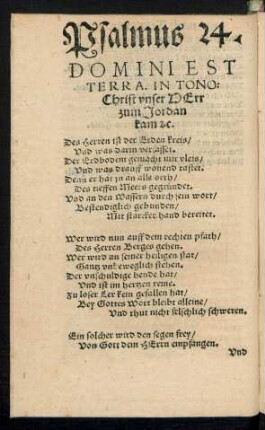 Psalmus 24.
DOMINI EST
TERRA. IN TONO:
Christ vnser HErr
zum Jordan
kam ꝛc.
Des Herren ist der Erden kreis/
Vnd was darin verfasset.
Der Erdbodem gemacht mit vleis/
Vnd was drauff wonend rastet.
Denn er hat jn an alle orth/
Des tieffen Meers gegründet.
Vnd an den Wassern durch sein wort/
Bestendiglich gebunden/
Mit starcker hand bereitet.
Wer wird nun auff dem rechten pfath/
Des Herren Berges gehen.
Wer wird an seiner heiligen stat/
Gantz vnd ewoglich stehen.
Der vnschuldige hende hat/
Vnd ist im hertzen reine.
Zu loser Ler kein gefallen hat/
Bey Gottes Wort bleibt alleine/
Vnd thut nicht felschlich schweren.
Ein solcher wird den segen frey/
Von Gott dem HErrn empfangen.
Vnd